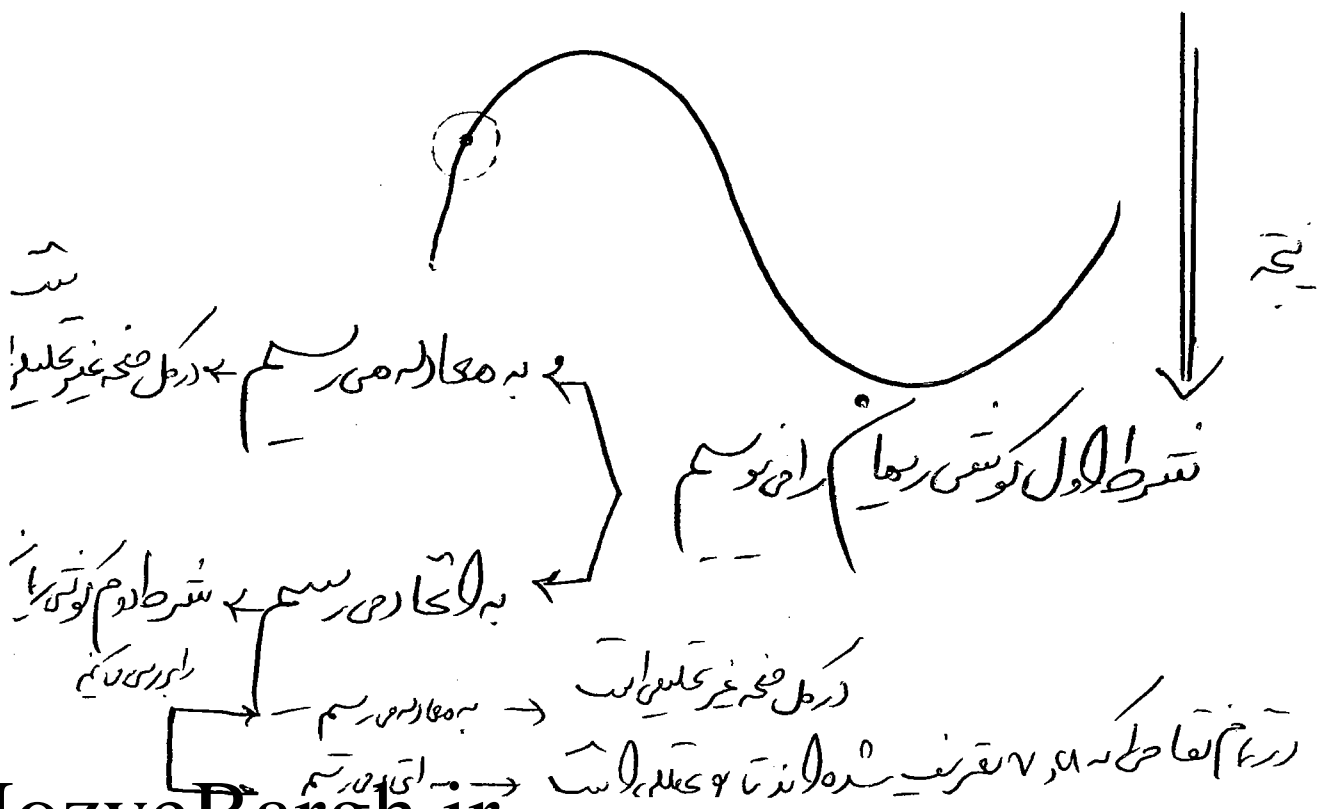 نتیجه
شرط اول کوشی ریمان را می نویسیم
به معادله می رسیم ← در کل صفحه غیر تحلیلی است
به اتحاد می رسیم ← شرط دوم کوشی ریمان
را بررسی می کنیم
به معادله می رسیم → در کل صفحه غیر تحلیلی است
به اتحاد می رسیم → در تمام نقاطی که u, v تعریف شده اند تابع تحلیلی است
JozveBargh.ir